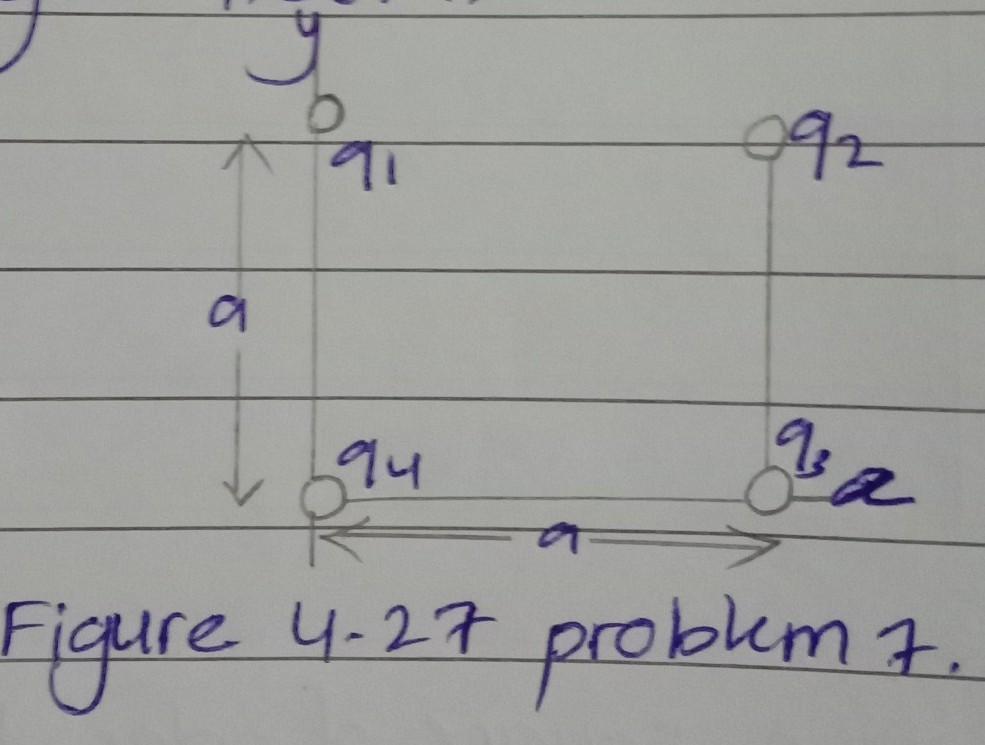 y
q1
q2
a
q4
q3
x
a
Figure 4.27 problem 7.